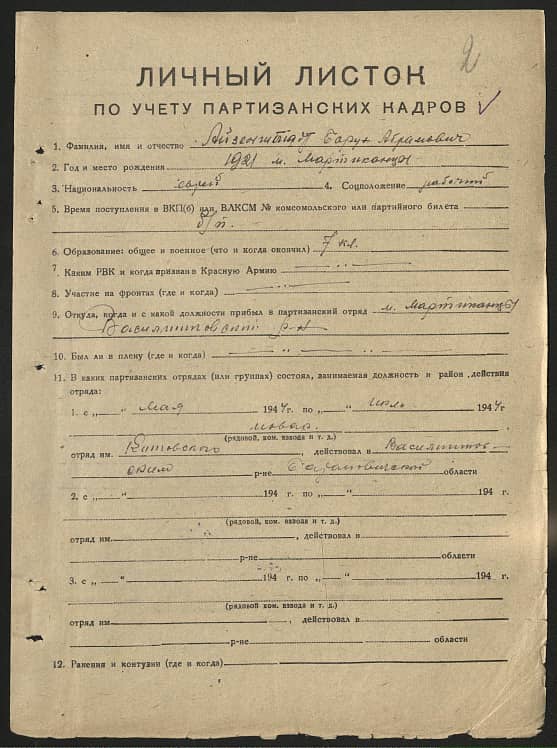 2
ЛИЧНЫЙ ЛИСТОК
ПО УЧЕТУ ПАРТИЗАНСКИХ КАДРОВ
1. Фамилия, имя и отчество Айзенштат Борух Абрамович
2. Год и место рождения 1921 м. Мартиканцы
3. Национальность еврей 4. Соцположение рабочий
5. Время поступления в ВКП(б) или ВЛКСМ № комсомольского или партийного билета
б/п.
6. Образование: общее и военное (что и когда окончил) 7 кл.
7. Каким РВК и когда призван в Красную Армию
8. Участие на фронтах (где и когда)
9. Откуда, когда и с какой должности прибыл в партизанский отряд м. Мартиканцы
Василишковский р-н
10. Был ли в плену (где и когда)
11. В каких партизанских отрядах (или группах) состоял, занимаемая должность и район действия
отряда:
1. с „ “ мая 1944 г. по „ “ июль 1944 г.
(рядовой, ком. взвода и т. д.)
отряд им. Котовского, действовал в Василишков
ском р-не Барановичской области
2. с „ “ 194 г. по „ “ 194 г.
(рядовой, ком. взвода и т. д.)
отряд им. , действовал в
р-не области
3. с „ “ 194 г. по „ “ 194 г.
(рядовой, ком. взвода и т. д.)
отряд им. , действовал в
р-не области
12. Ранения и контузии (где и когда)